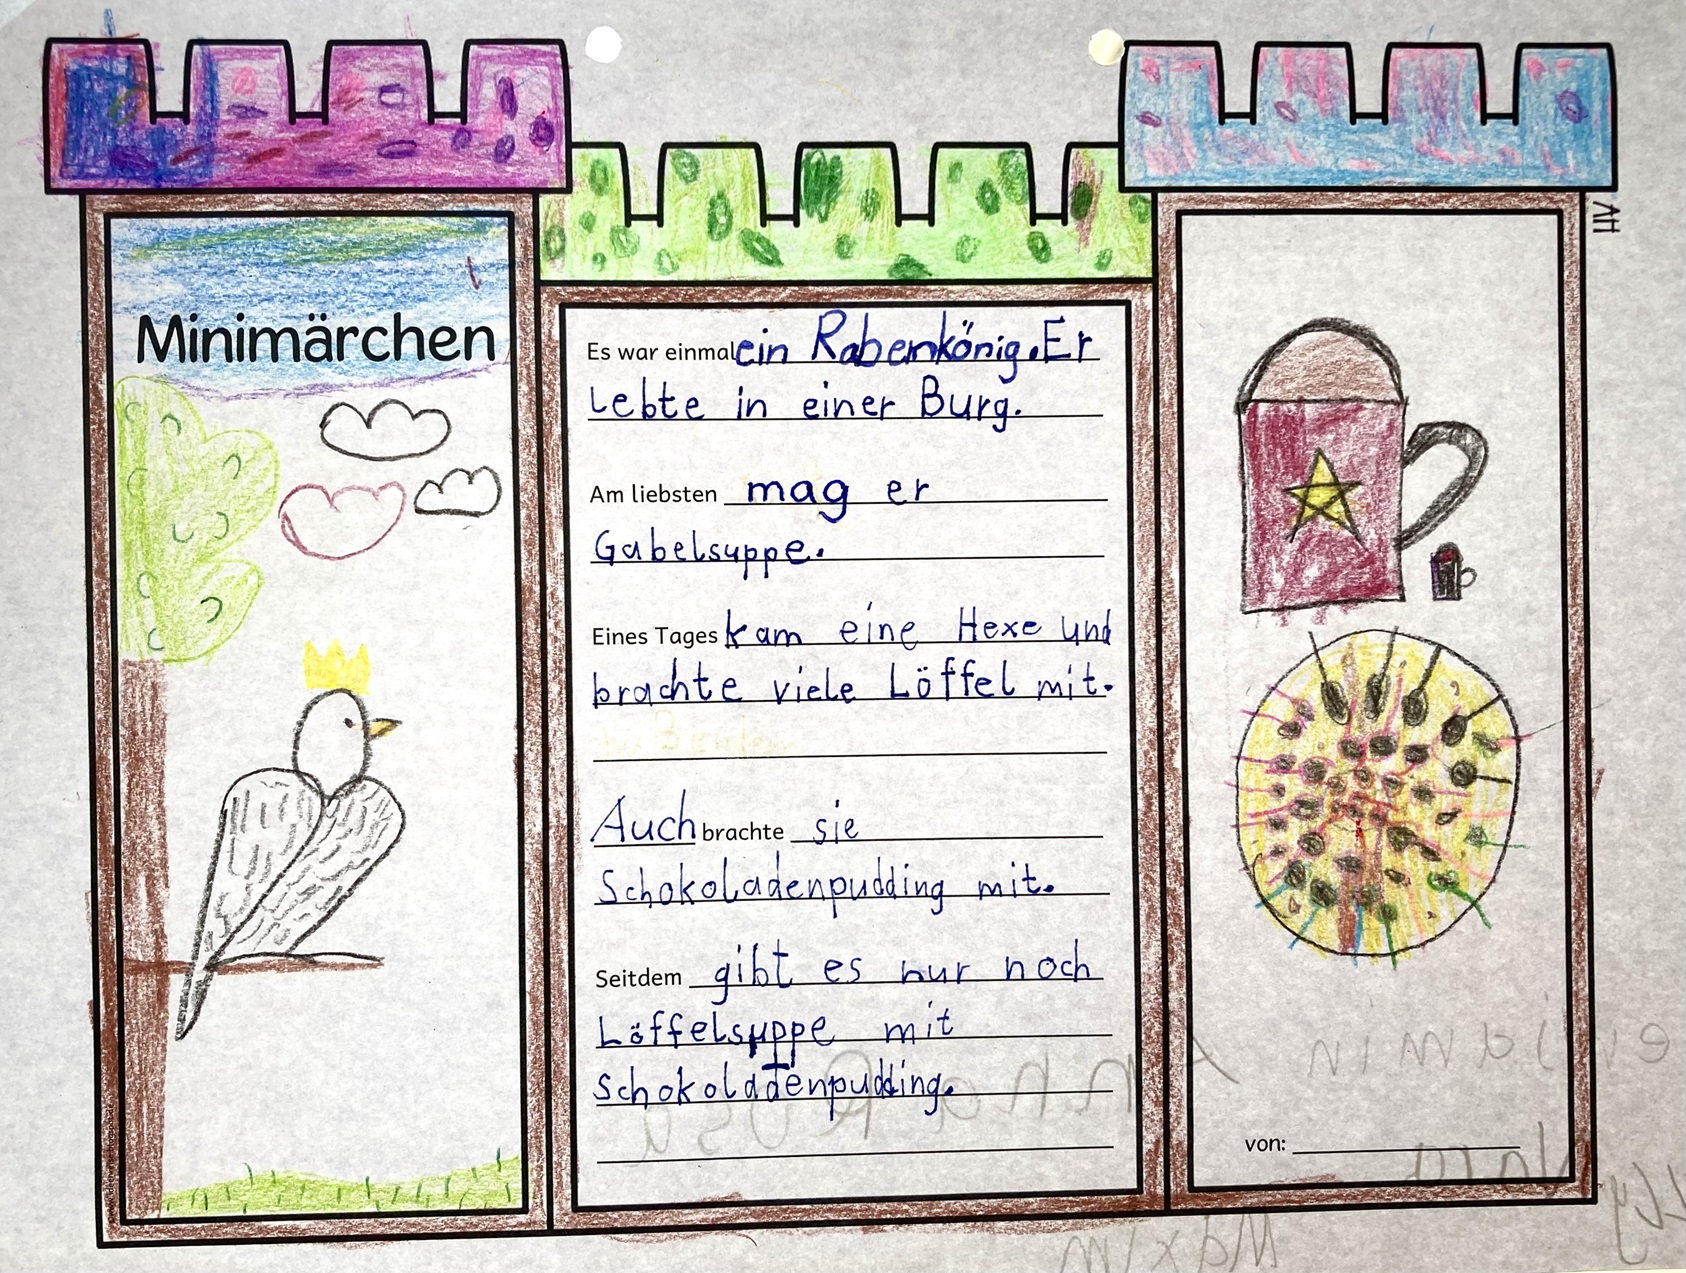 Minimärchen
Es war einmal ein Rabenkönig. Er
lebte in einer Burg.
Am liebsten mag er
Gabelsuppe.
Eines Tages kam eine Hexe und
brachte viele Löffel mit.
Auch brachte sie
Schokoladenpudding mit.
Seitdem gibt es nur noch
Löffelsuppe mit
Schokoladenpudding.
von: